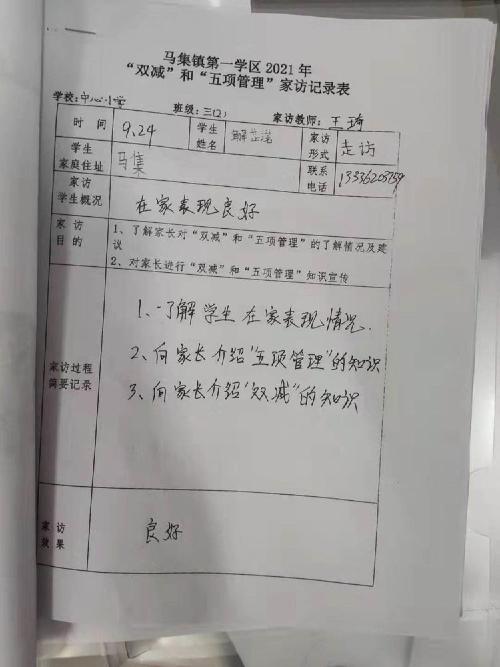 马集镇第一学区 2021 年
“双减”和“五项管理”家访记录表
学校:中心小学 班级:三(2) 家访教师:王瑜
时 间 9.24 学生姓名 解 家访形式 走访
学生家庭住址 马集 联系电话
家访学生概况 在家表现良好
家 访目 的 1、了解家长对“双减”和“五项管理”的了解情况及建
议
2、对家长进行“双减”和“五项管理”知识宣传
家访过程简要记录 1、了解学生在家表现情况.
2、向家长介绍“五项管理”的知识
3、向家长介绍“双减”的知识
家 访效 果 良好